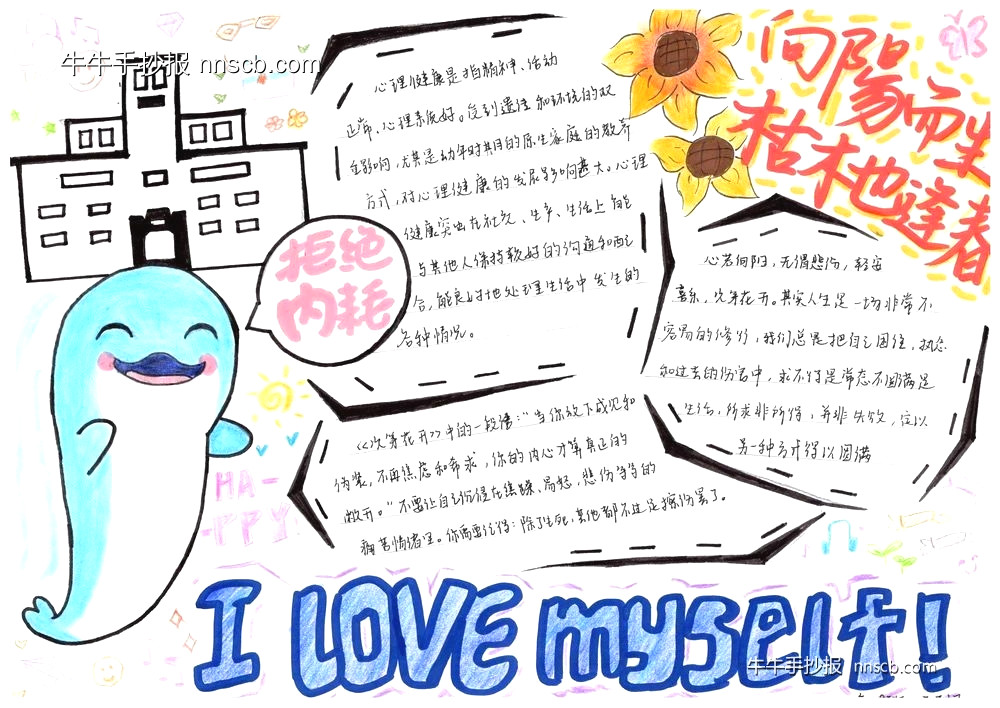 牛牛手抄报 nnscb.com
向陽而生
枯木也逢春
心理健康是指精神、活动
正常、心理素质好。受到遗传和环境的双
重影响,尤其是幼年时期的原生家庭的教养
方式,对心理健康的发展影响甚大。心理
健康突出在社交、生产、生活上能
与其他人保持较好的沟通和配
合,能良好地处理生活中发生的
各种情况。
拒绝
内耗
心若向阳,无谓悲伤,
喜乐,次第花开。其实人生是一场非常不
容易的修行,我们总是把自己困住,执念
和过去的伤害中,求不得是常态不圆满是
生活,所求非所得,并非失败,
另一种方式得以圆满
《次第花开》中的一段话:“当你放下成见和
伪装,不再焦虑和希求,你的内心才算真正的
敞开。”不要让自己沉浸在焦躁、易怒,悲伤等等的
痛苦情绪里。你需要记得:除了生死,其他都不过是擦伤罢了。
HA-
PPY
I LOVE myself!
牛牛手抄报 nnscb.com